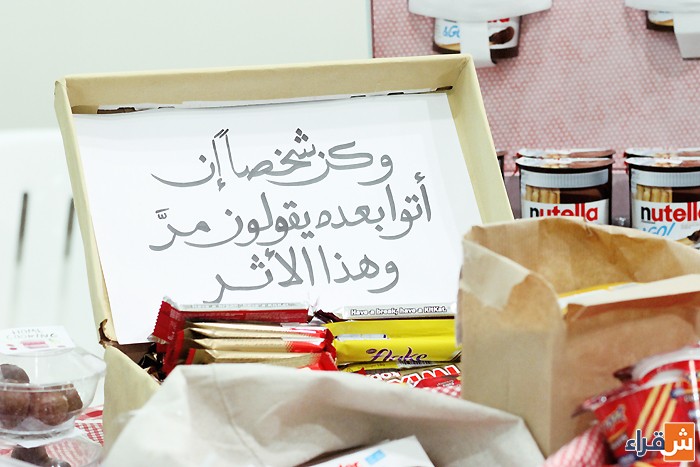 وكن شخصاً إن
أتوا بعده يقولون مرَّ
وهذا الأثر
nutella
&GO!
nutella
&GO!
Have a break, have a KitKat.
Flake
شقراء